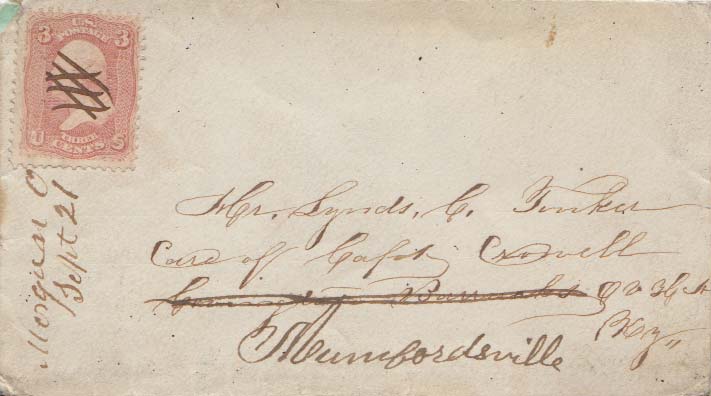 3 U.S. 3
POSTAGE
U THREE S
CENTS
Morgan O
Sept 21
Mr. Lynds. C. Tinker
Care of Capt Crowell
Barracks
Ky
Mumfordsville